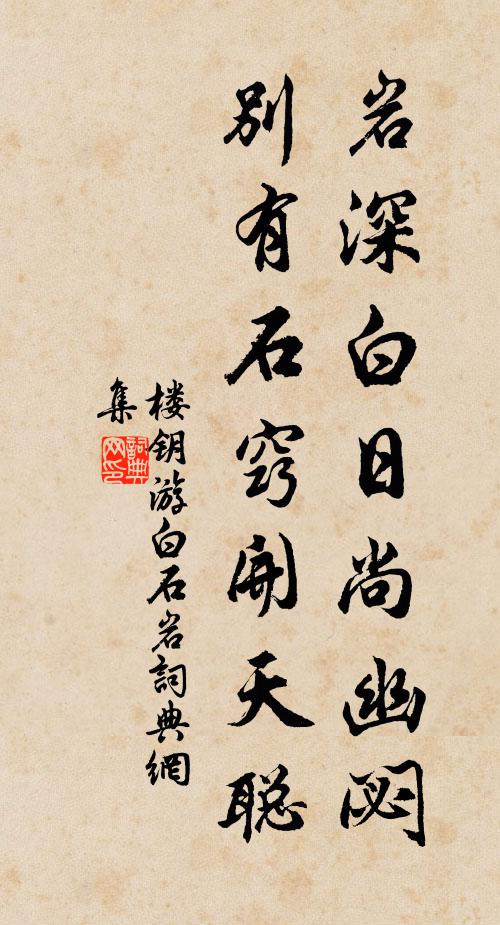 岩深白日尚幽閟
别有石窍開天聪
楼钥游白石岩詞典網
集
詞典网印